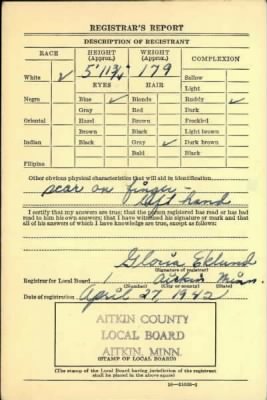 REGISTRAR'S REPORT
DESCRIPTION OF REGISTRANT
RACE HEIGHT (Approx.) WEIGHT (Approx.) COMPLEXION
5' 11 3/4 179
White ✓ Sallow
EYES HAIR Light
Negro Blue ✓ Blonde Ruddy ✓
Gray Red Dark
Oriental Hazel Brown Freckled
Brown Black Light brown
Indian Black Gray ✓ Dark brown
Bald Black
Filipino
Other obvious physical characteristics that will aid in identification
scar on finger -
left hand
I certify that my answers are true; that the person registered has read or has had
read to him his own answers; that I have witnessed his signature or mark and that
all of his answers of which I have knowledge are true, except as follows:
Gloria Eklund
(Signature of registrar)
Registrar for Local Board 1 Aitkin Minn.
(Number) (City or county) (State)
Date of registration April 27, 1942
AITKIN COUNTY
LOCAL BOARD
AITKIN, MINN.
(STAMP OF LOCAL BOARD)
(The stamp of the Local Board having jurisdiction of the registrant
shall be placed in the above space)